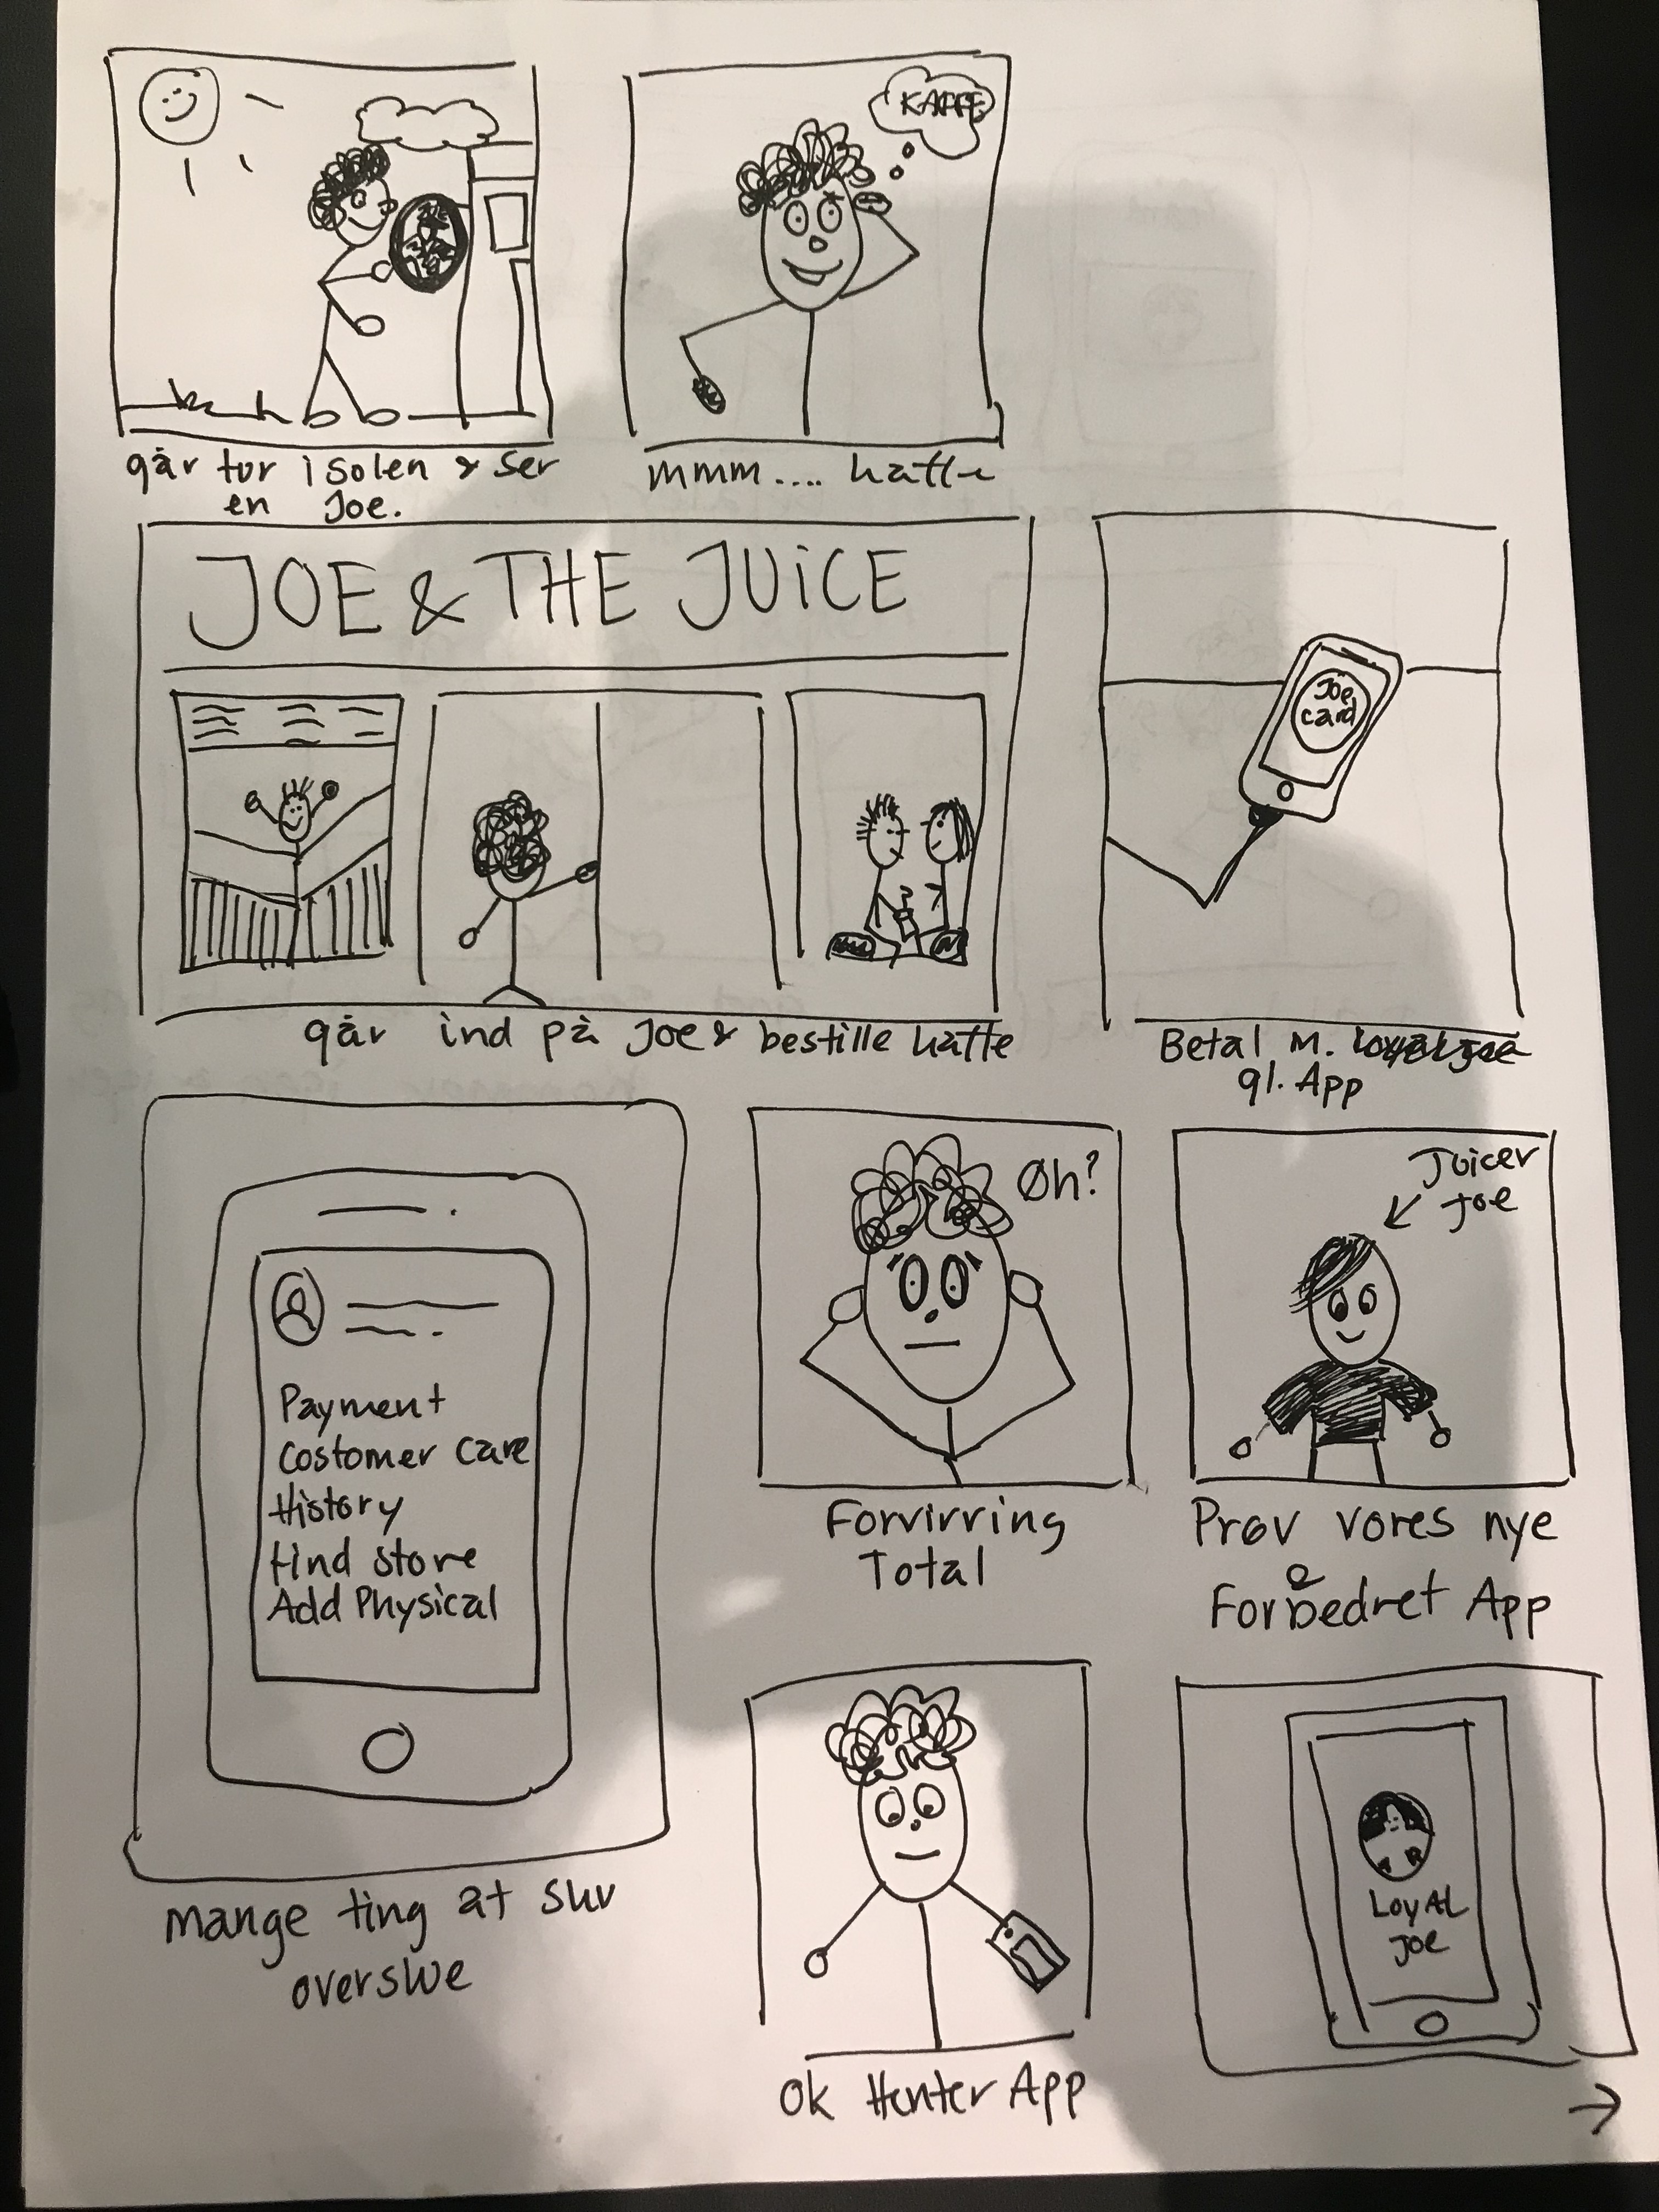 KAFFE
går tur i solen & ser
en Joe.
mmm.... kaffe
JOE & THE JUICE
går ind på Joe & bestille kaffe
Joe
card
Betal m. Loyal Joe
gl. App
Payment
Costomer Care
History
find store
Add Physical
mange ting at sku
overskue
Øh?
Forvirring
Total
Juicer
Joe
Prøv vores nye
Forbedret App
Ok Henter App
LOYAL
JOE